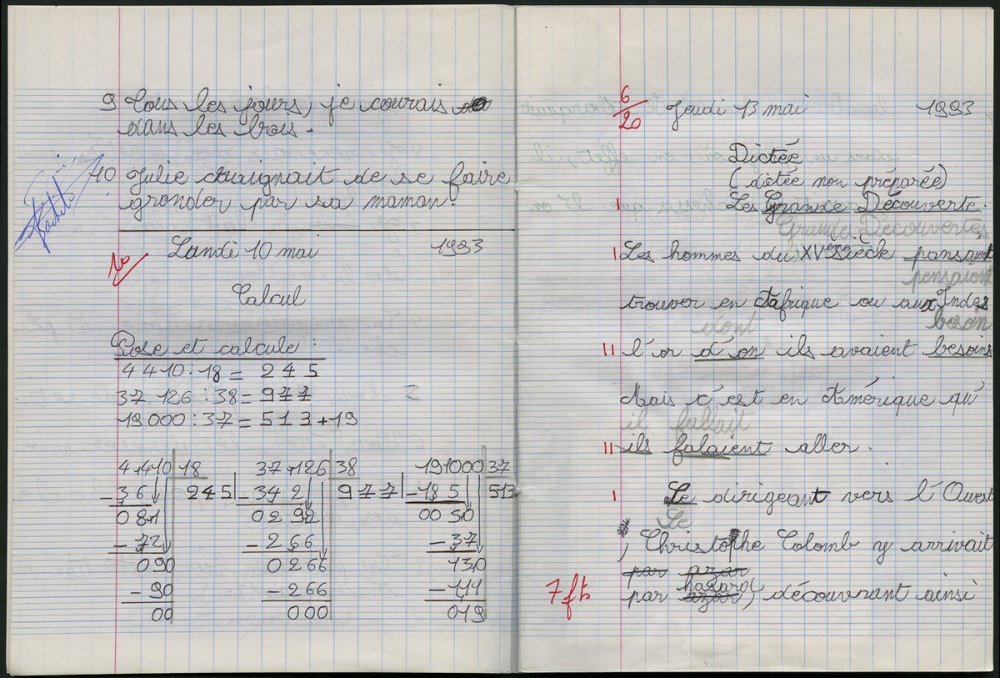 9 Tous les jours, je courais
dans les bois.
10 Julie craignait de se faire
gronder par sa maman.
Lundi 10 mai 1993
Calcul
Pose et calcule :
4410 : 18 = 245
37 126 : 38 = 977
19 000 : 37 = 513 + 19
4410 18 37126 38 19000 37
- 36 245 - 342 977 - 185 513
081 0292 0050
- 72 - 266 - 37
090 0266 130
- 90 - 266 - 111
00 000 019
6/20 Jeudi 13 mai 1993
Dictée
(dictée non préparée)
I Les Grande Découverte.
Grandes Découvertes
I Les hommes du XVème siècle pansaient
pensaient
trouver en Afrique ou aux Indes
dont besoin
II l'or d'on ils avaient besoins
Mais c'est en Amérique qu'
il fallait
II ils falaient aller.
I Le dirigeant vers l'Ouest
Se
, Christophe Colomb y arrivait
par azar
hazard
7 fts par azar, découvrant ainsi